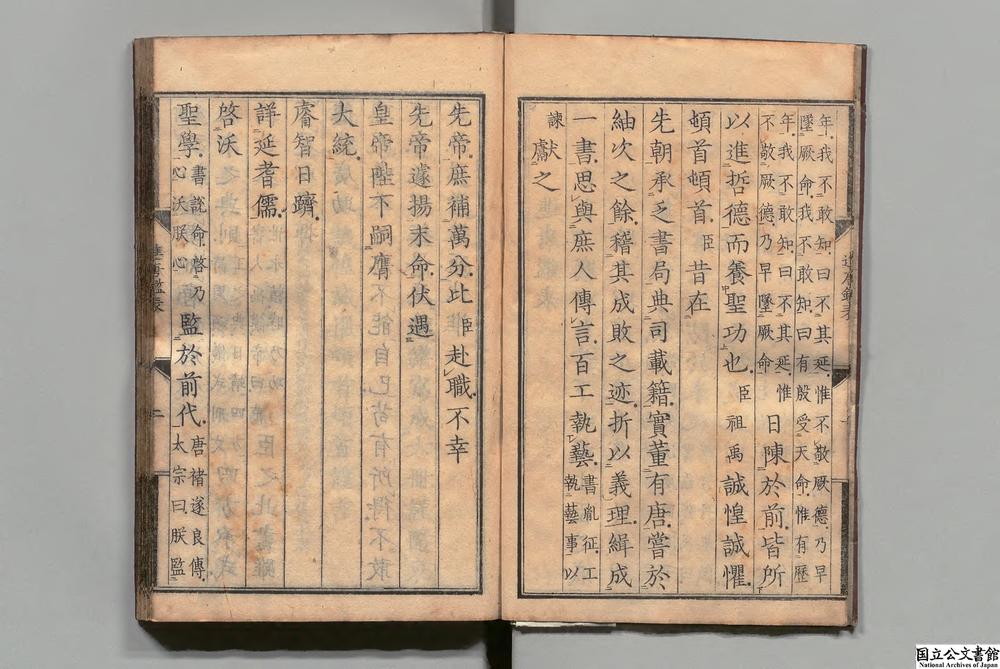 年我不敢知曰不其延惟不敬厥德乃早
墜厥命我不敢知曰有殷受天命惟有歷
年我不敢知曰不其延惟
不敬厥德乃早墜厥命
日陳於前皆所
以進哲德而養聖功也臣祖禹誠惶誠懼
頓首頓首臣昔在
先朝承乏書局典司載籍實董有唐嘗於
紬次之餘稽其成敗之迹折以義理緝成
一書思與庶人傳言百工執藝
書胤征工
執藝事以
諫
獻之
先帝庶補萬分比臣赴職不幸
先帝遽揚末命伏遇
皇帝陛下嗣膺
大統
睿智日躋
詳延耆儒
啓沃
聖學
書說命啓乃
心沃朕心
監於前代
唐褚遂良傳
太宗曰朕監
二
国立公文書館
National Archives of Japan